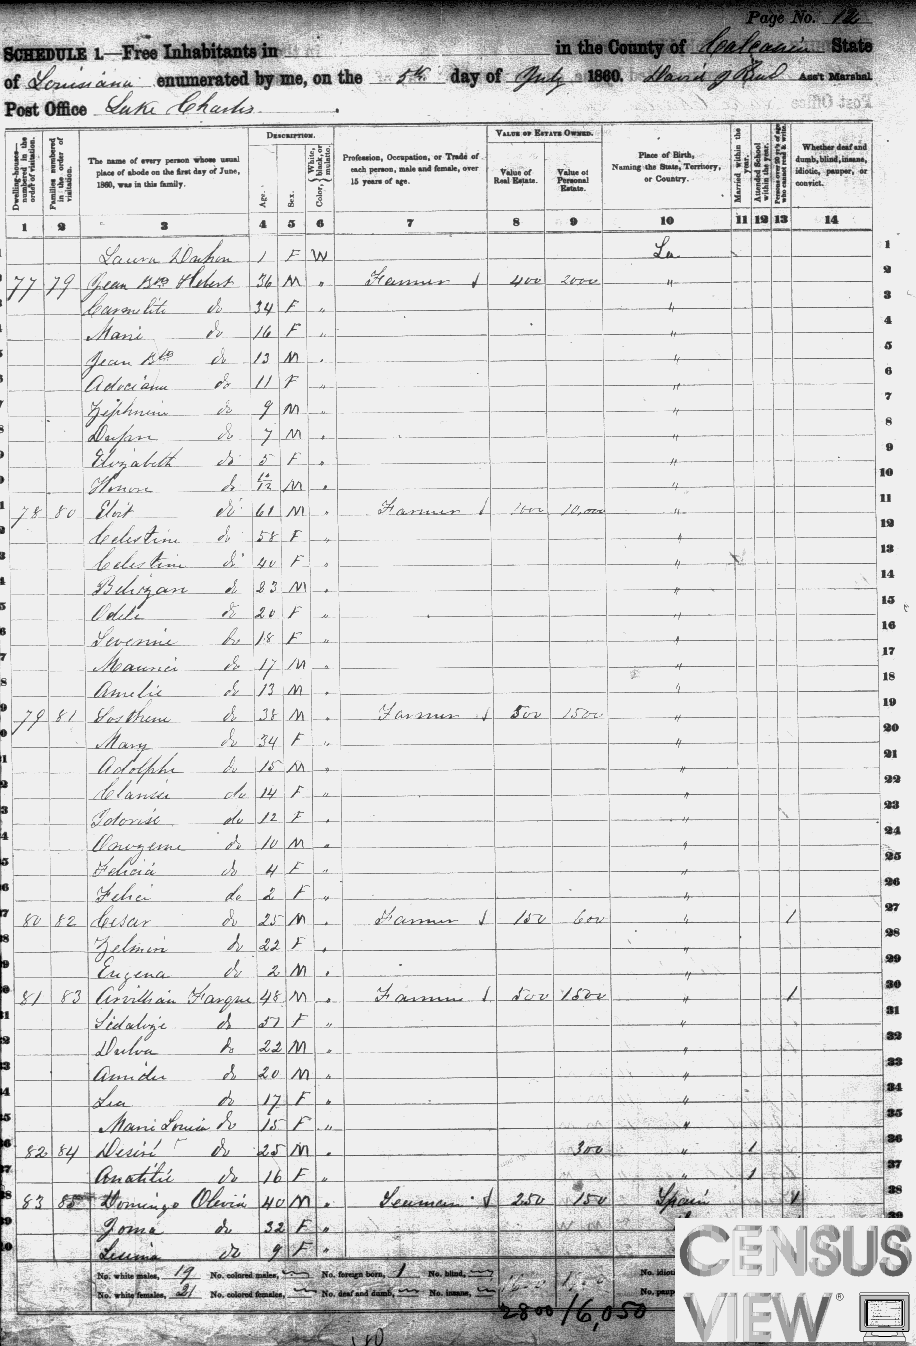 Page No. 12
SCHEDULE 1.—Free Inhabitants in in the County of Calcasieu State
of Louisiana enumerated by me, on the 5th day of July 1860. David J Reid Ass't Marshal
Post Office Lake Charles.
Dwelling-houses—numbered in the order of visitation.
Families numbered in the order of visitation.
The name of every person whose usual place of abode on the first day of June, 1860, was in this family.
DESCRIPTION.
Age.
Sex.
Color, White, black, or mulatto.
Profession, Occupation, or Trade of each person, male and female, over 15 years of age.
VALUE OF ESTATE OWNED.
Value of Real Estate.
Value of Personal Estate.
Place of Birth, Naming the State, Territory, or Country.
Married within the year.
Attended School within the year.
Persons over 20 y'rs of age who cannot read & write.
Whether deaf and dumb, blind, insane, idiotic, pauper, or convict.
1 2 3 4 5 6 7 8 9 10 11 12 13 14
Laura Dupon 1 F W La 1
77 79 Jean Bte Hebert 36 M " Farmer $ 400 2000 " 2
Carmelite do 34 F " " 3
Marie do 16 F " " 4
Jean Bte do 13 M " " 5
do 11 F " " 6
do 9 M " " 7
do 7 M " " 8
Elizabeth do 5 F " " 9
do 10/12 M " " 10
78 80 Eloi do 61 M " Farmer $ 1000 10,000 " 11
Celestine do 58 F " " 12
Celestine do 40 F " " 13
do 23 M " " 14
Odele do 20 F " " 15
Severine do 18 F " " 16
Maurice do 17 M " " 17
Amelie do 13 M " " 18
79 81 Sosthene do 38 M " Farmer $ 500 1500 " 19
Mary do 34 F " " 20
Adolphe do 15 M " " 21
do 14 F " " 22
do 12 F " " 23
Onezeme do 10 M " " 24
Felicia do 4 F " " 25
do 2 F " " 26
80 82 Cesar do 25 M " Farmer $ 150 600 " 1 27
Zelmire do 22 F " " 28
Eugena do 2 M " " 29
81 83 Farque 48 M " Farmer $ 500 1500 " 1 30
do 51 F " " 31
do 22 M " " 32
do 20 M " " 33
Lea do 17 F " " 34
Marie Louisa do 15 F " " 35
82 84 Desiré do 25 M " 300 " 1 36
Anatilié do 16 F " " 1 37
83 85 Domingo Olevia 40 M " Seaman $ 250 150 Spain 1 38
do 32 F " 39
do 9 F "
No. white males, 19 No. colored males, No. foreign born, 1 No. blind, No. idiotic
No. white females, 21 No. colored females, No. deaf and dumb, No. insane, No. paup
2800 16,050
CENSUS
VIEW®